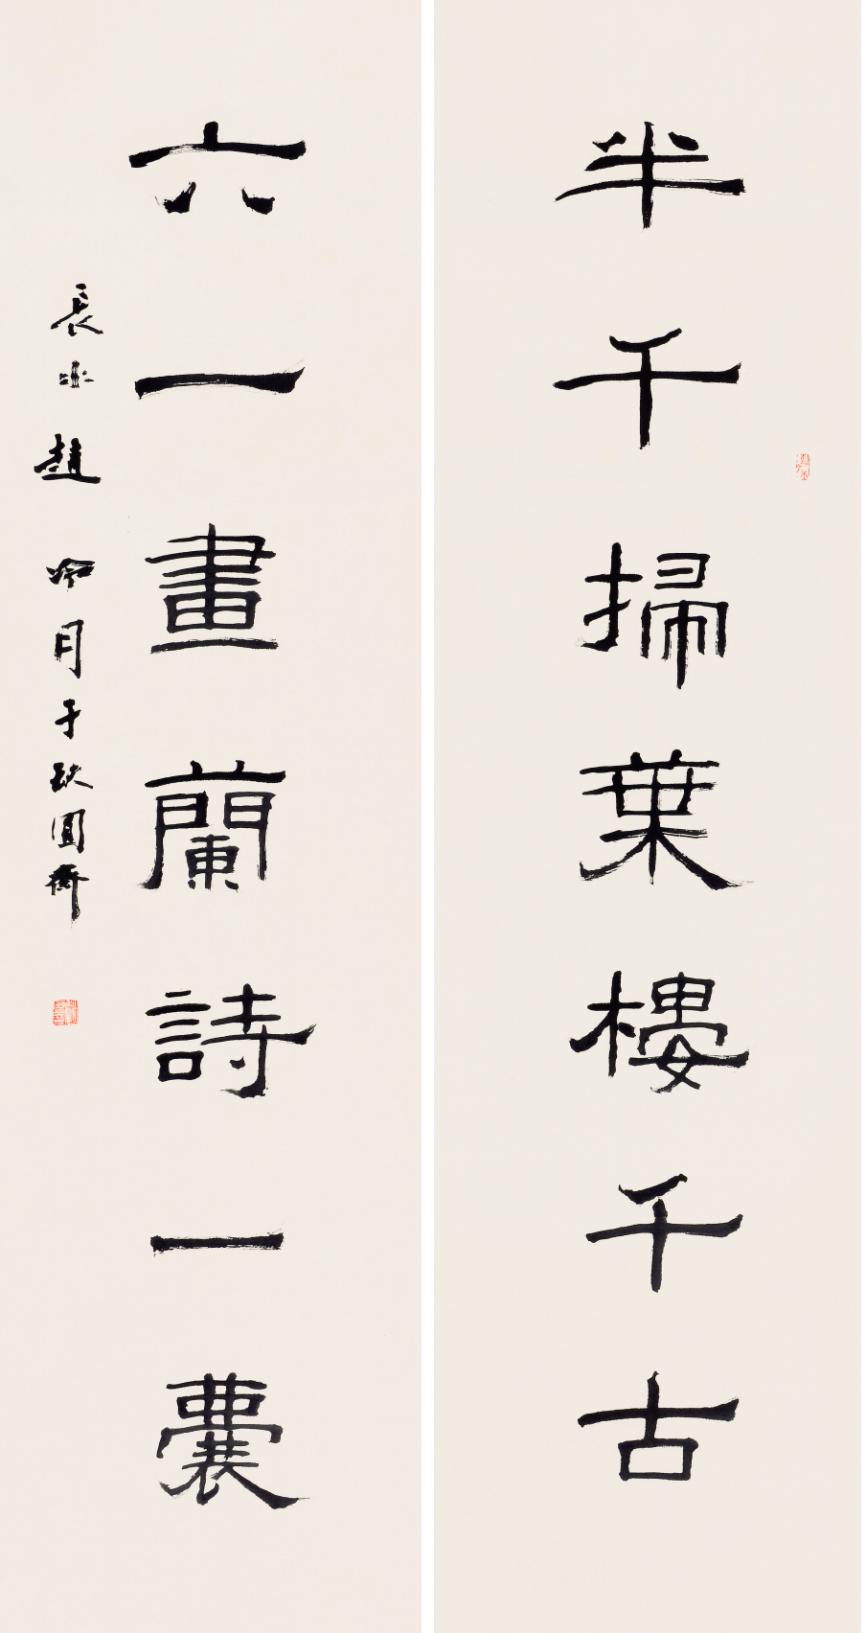 半千掃葉樓千古
六一畫蘭詩一囊
長水趙冷月于缺圓齋